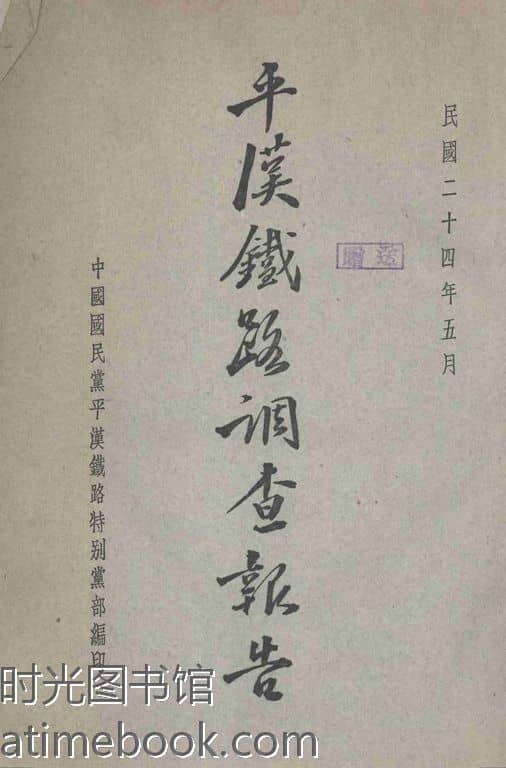 民國二十四年五月
贈送
平漢鐵路調查報告
中國國民黨平漢鐵路特别黨部編印
时光图书馆
atimebook.com